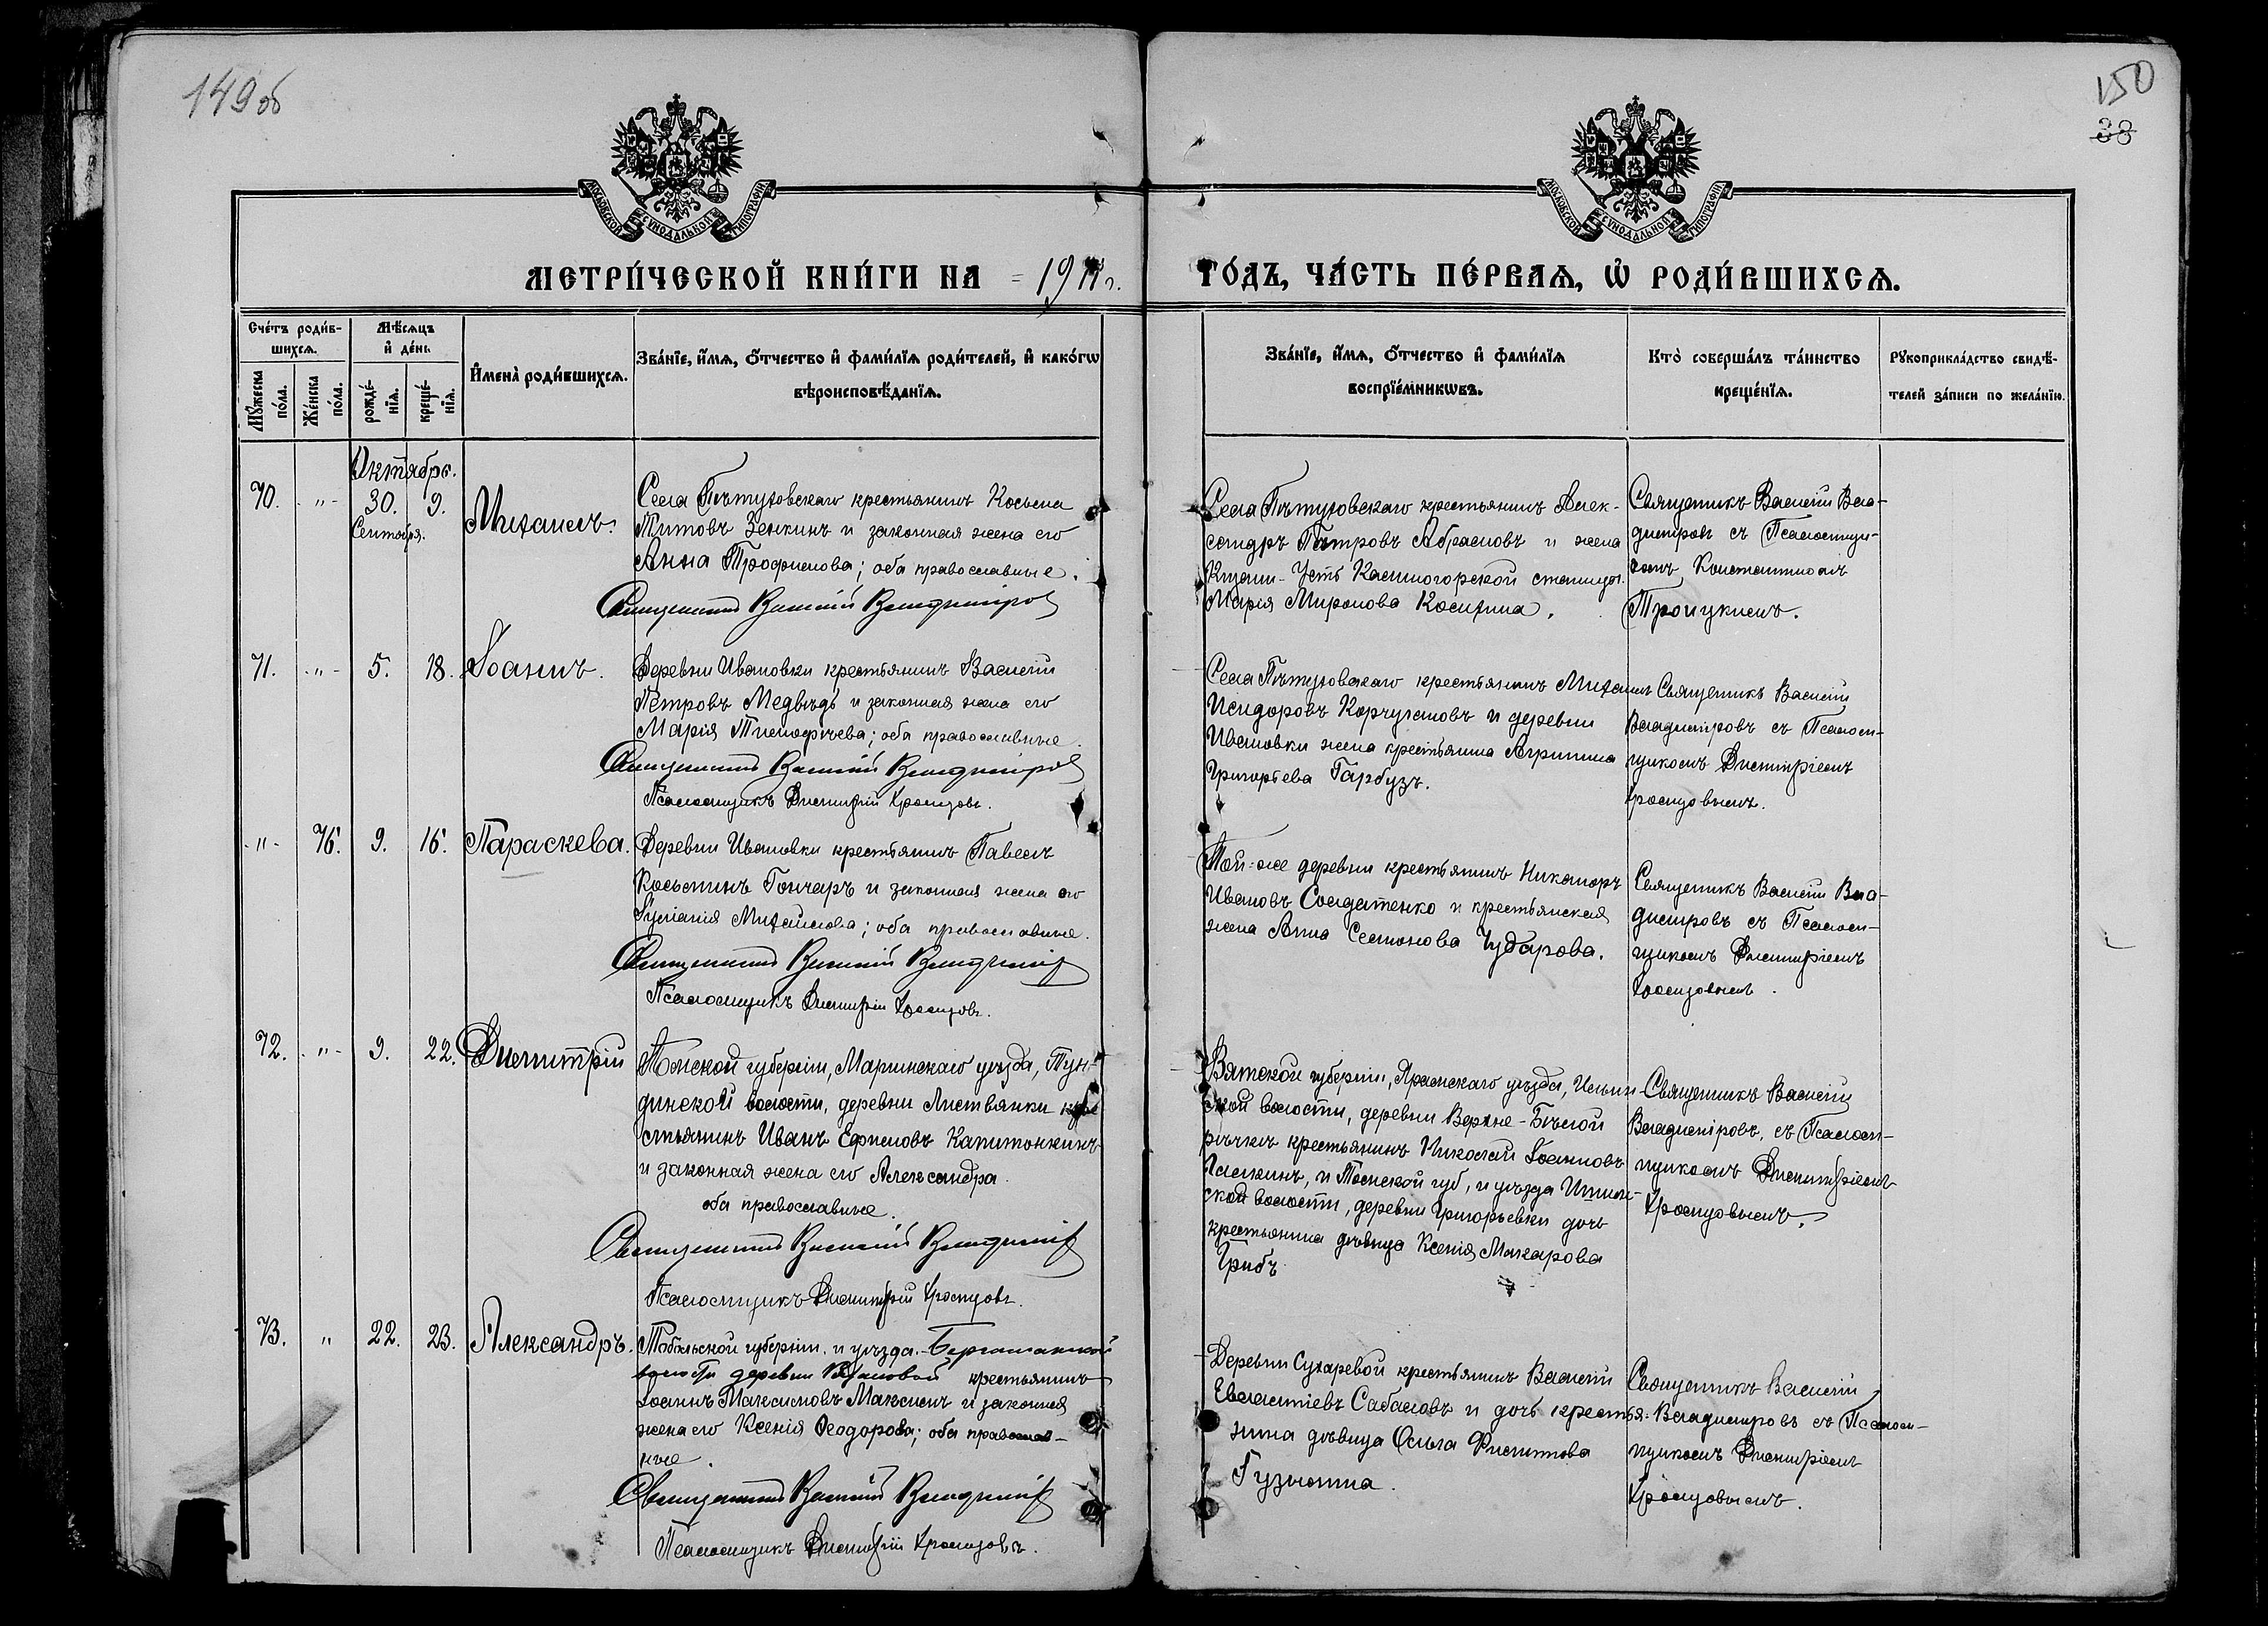 149об
150
38
МОСКОВСКОЙ СѴНОДАЛЬНОЙ ТИПОГРАФІИ
МОСКОВСКОЙ СѴНОДАЛЬНОЙ ТИПОГРАФІИ
МЕТРИ́ЧЕСКОЙ КНИ́ГИ НА 1911 г.
ГО́ДЪ, ЧА́СТЬ ПЕ́РВАѦ, Ѡ҆ РОДИ́ВШИХСѦ.
Сче́тъ роди́в-
шихсѧ.
Мꙋ́жеска по́ла.
Же́нска по́ла.
Мѣ́сѧцъ
и҆ де́нь.
рожде́-
нїѧ.
креще́-
нїѧ.
И҆мена̀ роди́вшихсѧ.
Зва́нїе, и҆́мѧ, ѻ҆́тчество и҆ фами́лїѧ роди́телей, и҆ како́гѡ
вѣроисповѣ́данїѧ.
Зва́нїе, и҆́мѧ, ѻ҆́тчество и҆ фами́лїѧ
воспрїе́мникѡвъ.
Кто̀ соверша́лъ та́инство
креще́нїѧ.
Рꙋкоприкла́дство свидѣ́-
телей за́писи по жела́нїю.
Октябрь.
70. -"- 30. 9.
Сентября.
Михаилъ.
Села Пѣтуховскаго крестьянинъ Косьма
Титовъ Зенкинъ и законная жена его
Анна Трофимова; оба православные.
Священникъ Василій Владиміров
Села Пѣтуховскаго крестьянинъ Алек-
сандръ Петровъ Абрамовъ и жена
Усть Каменогорской станицы
Марія Миронова Косихина.
Священникъ Василій Вла-
диміровъ съ Псаломщи-
комъ Константиномъ
Троицкимъ.
71. -"- 5. 18. Іоаннъ.
Деревни Ивановки крестьянинъ Василій
Петровъ Медвѣдь и законная жена его
Марія Тимофѣева; оба православные.
Священникъ Василій Владиміров
Псаломщикъ Димитрій Кромцовъ.
Села Пѣтуховскаго крестьянинъ Михаилъ
Исидоровъ Корчугановъ и деревни
Ивановки жена крестьянина Агрипина
Григорьева Гарбузъ.
Священникъ Василій
Владиміровъ съ Псалом-
щикомъ Димитріемъ
Кромцовымъ.
-"- 76. 9. 16. Параскева.
Деревни Ивановки крестьянинъ Павелъ
Косьминъ Гончаръ и законная жена его
Іуліанія Михаилова; оба православные.
Священникъ Василій Владимір
Псаломщикъ Димитрій Кромцовъ.
Той-же деревни крестьянинъ Никаноръ
Ивановъ Солдатенко и крестьянская
жена Анна Семонова Чубарова.
Священникъ Василій Вла-
диміровъ съ Псалом-
щикомъ Димитріемъ
Кромцовымъ.
72. -"- 9. 22. Димитрій
Томской губерніи, Маріинскаго уѣзда, Тун-
динской волости, деревни Листвянки кре-
стьянинъ Иванъ Ефимовъ Капитонкинъ
и законная жена его Александра
оба православные.
Священникъ Василій Владимір
Псаломщикъ Димитрій Кромцовъ.
Вятской губерніи, Яранскаго уѣзда, Ильин-
ской волости, деревни Верхне-Бѣлой
рѣчки крестьянинъ Николай Іоанновъ
и Томской губ, и уѣзда Ишим-
ской волости, деревни Григорьевки дочь
крестьянина дѣвица Ксенія Макарова
Грибъ
Священникъ Василій
Владиміровъ, съ Псалом-
щикомъ Димитріемъ
Кромцовымъ.
73. " 22. 23. Александръ.
Тобольской губерніи, и уѣзда. Бергамакской
волости деревни крестьянинъ
Іоаннъ Максимовъ Максимъ и законная
жена его Ксенія Ѳеодорова; оба православ-
ные.
Священникъ Василій Владимір
Псаломщикъ Димитрій Кромцовъ.
Деревни Сухаревой крестьянинъ Василій
Евлампіевъ Сабановъ и дочь крестья-
нина дѣвица Ольга Филиппова
Гузынина.
Священникъ Василій
Владиміровъ съ Псалом-
щикомъ Димитріемъ
Кромцовымъ.